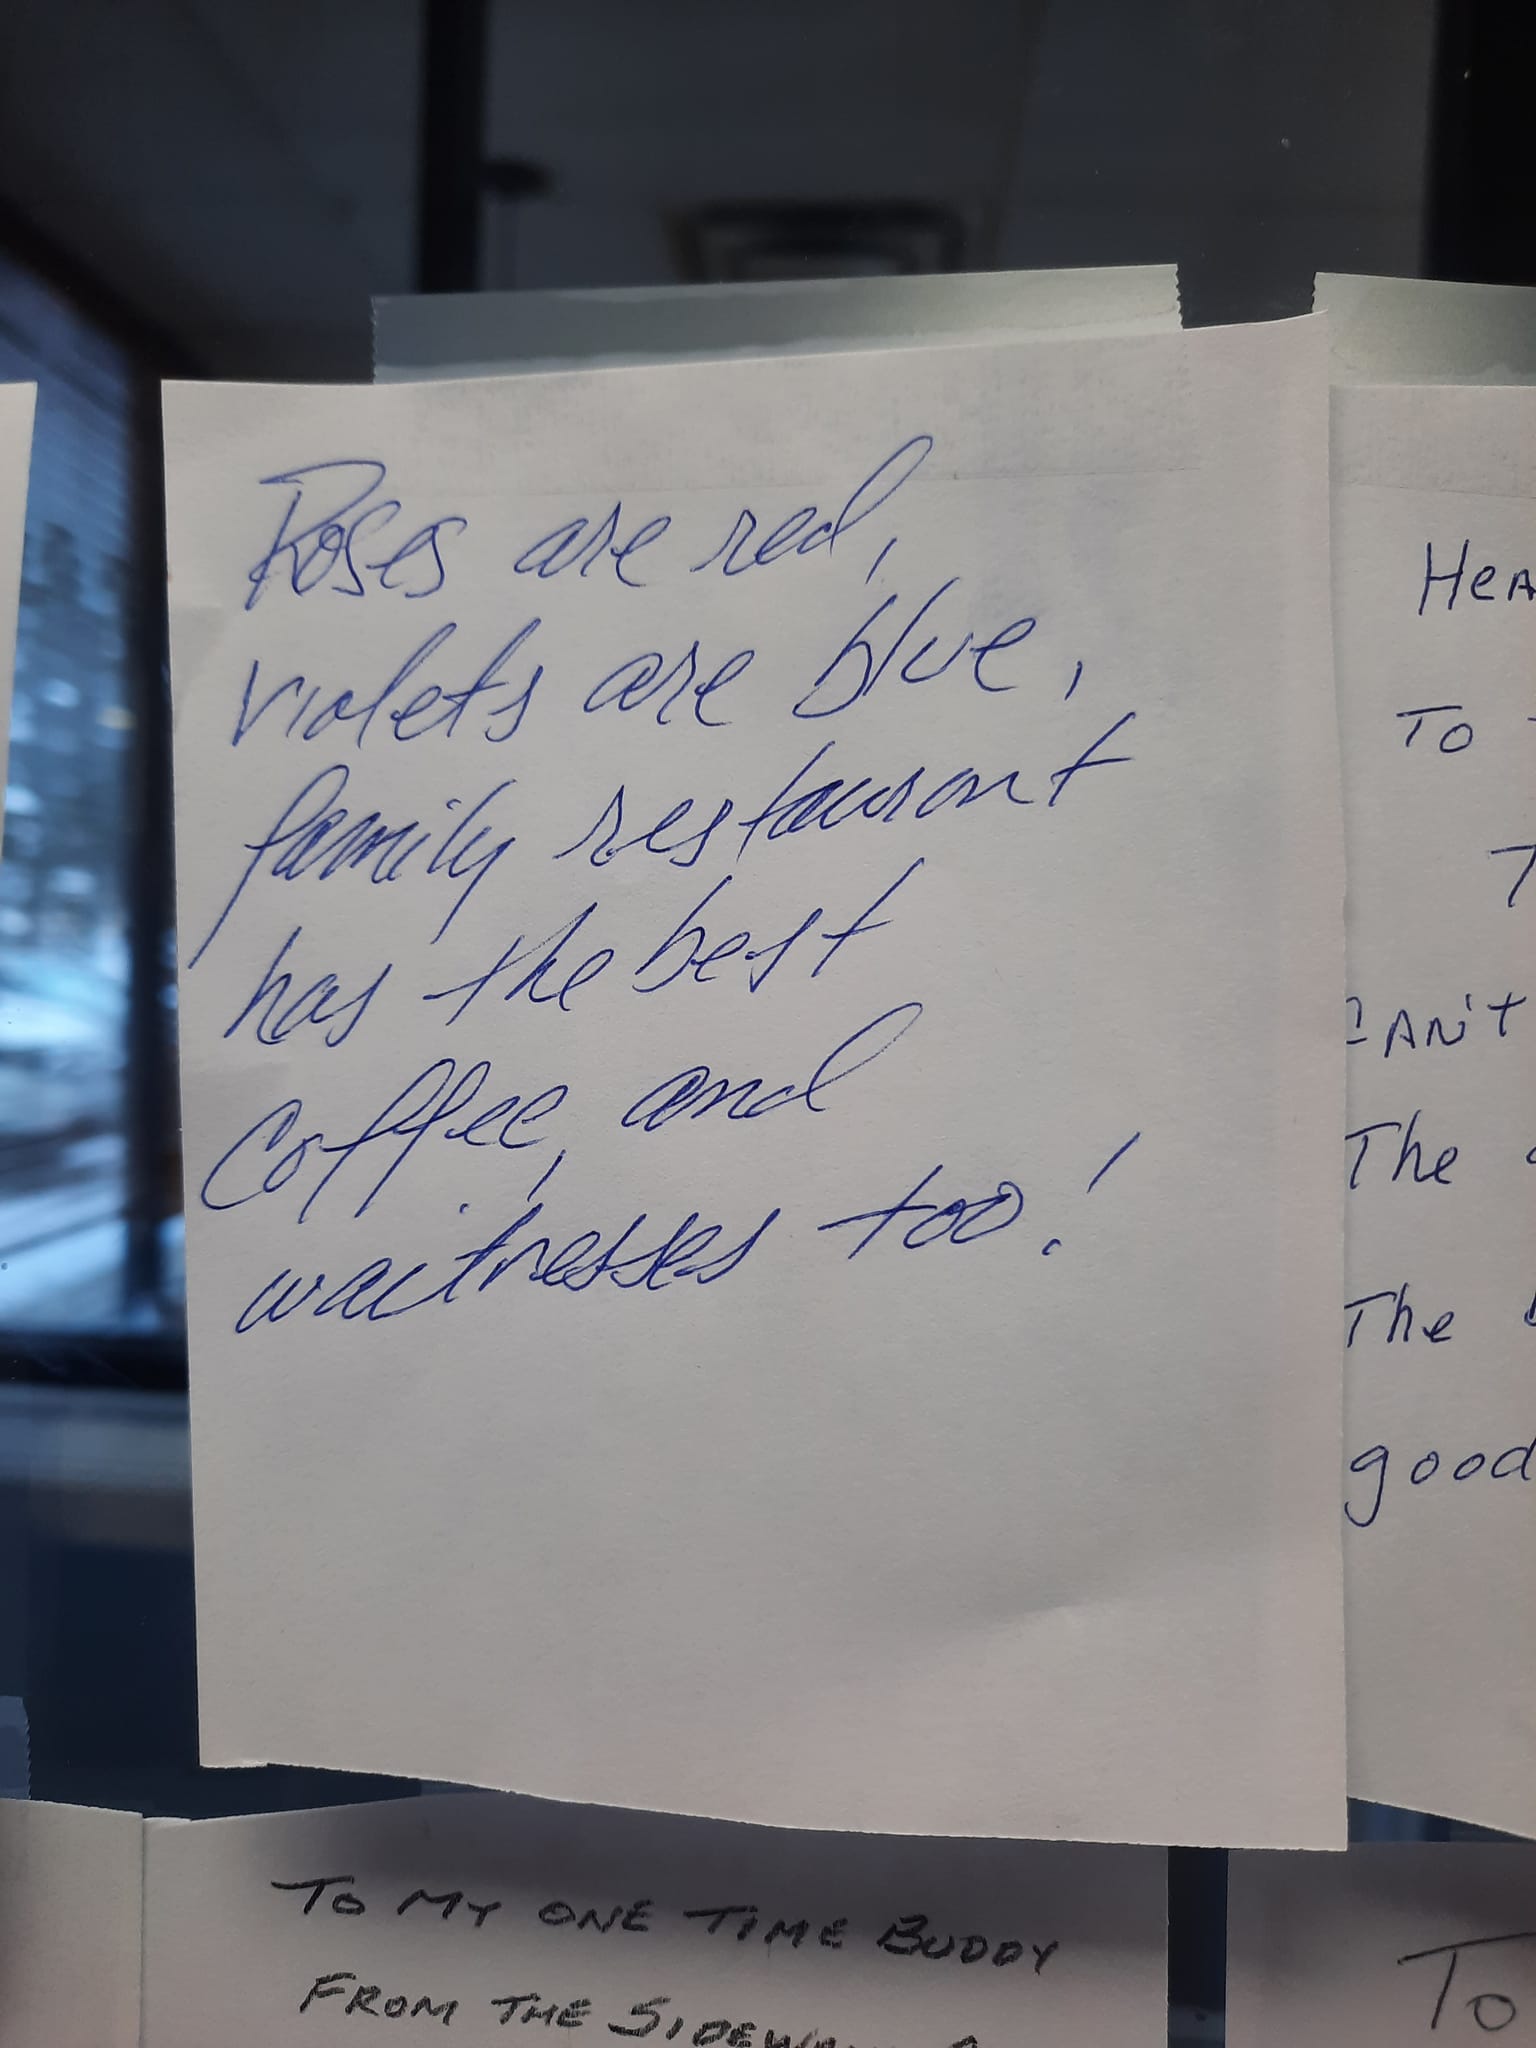 Roses are red,
violets are blue,
family restaurant
has the best
Coffee, and
waitresses too!
HeA
To
T
CAN't
The
The
good
To my one time Buddy
From the Sidew
To